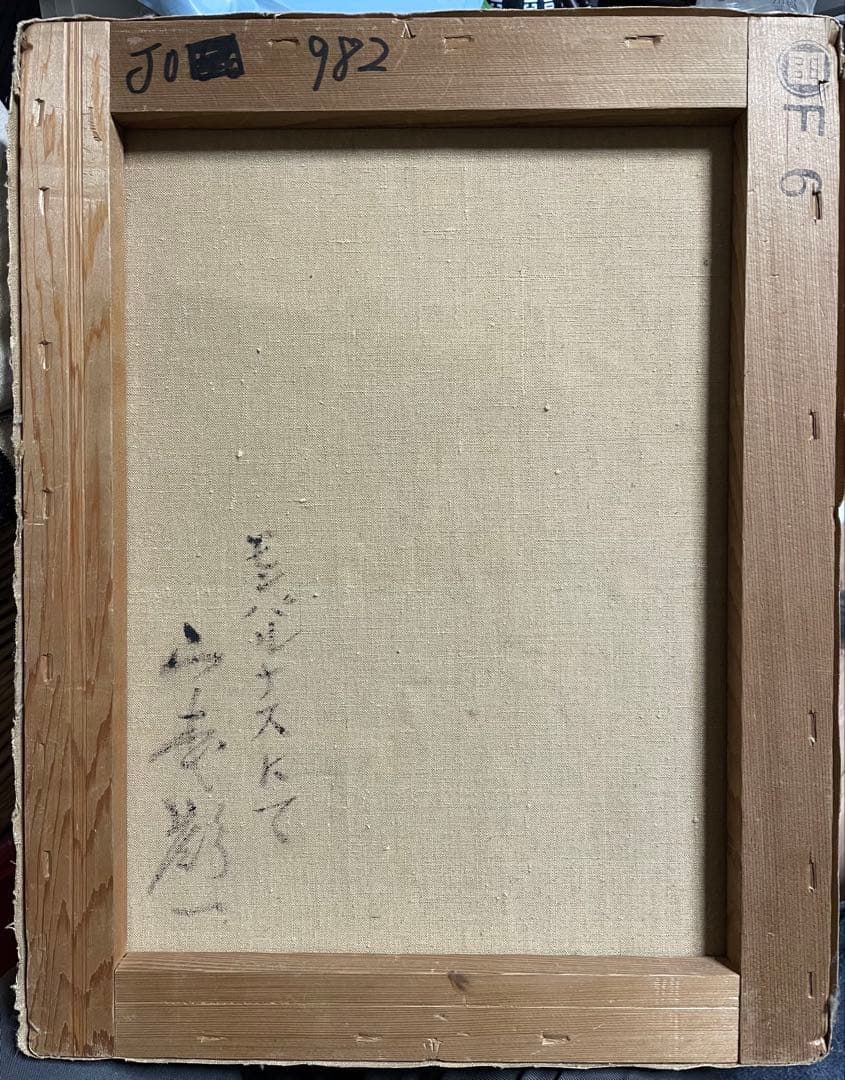 J0 982
F 6
モンパルナスにて
山本彪一